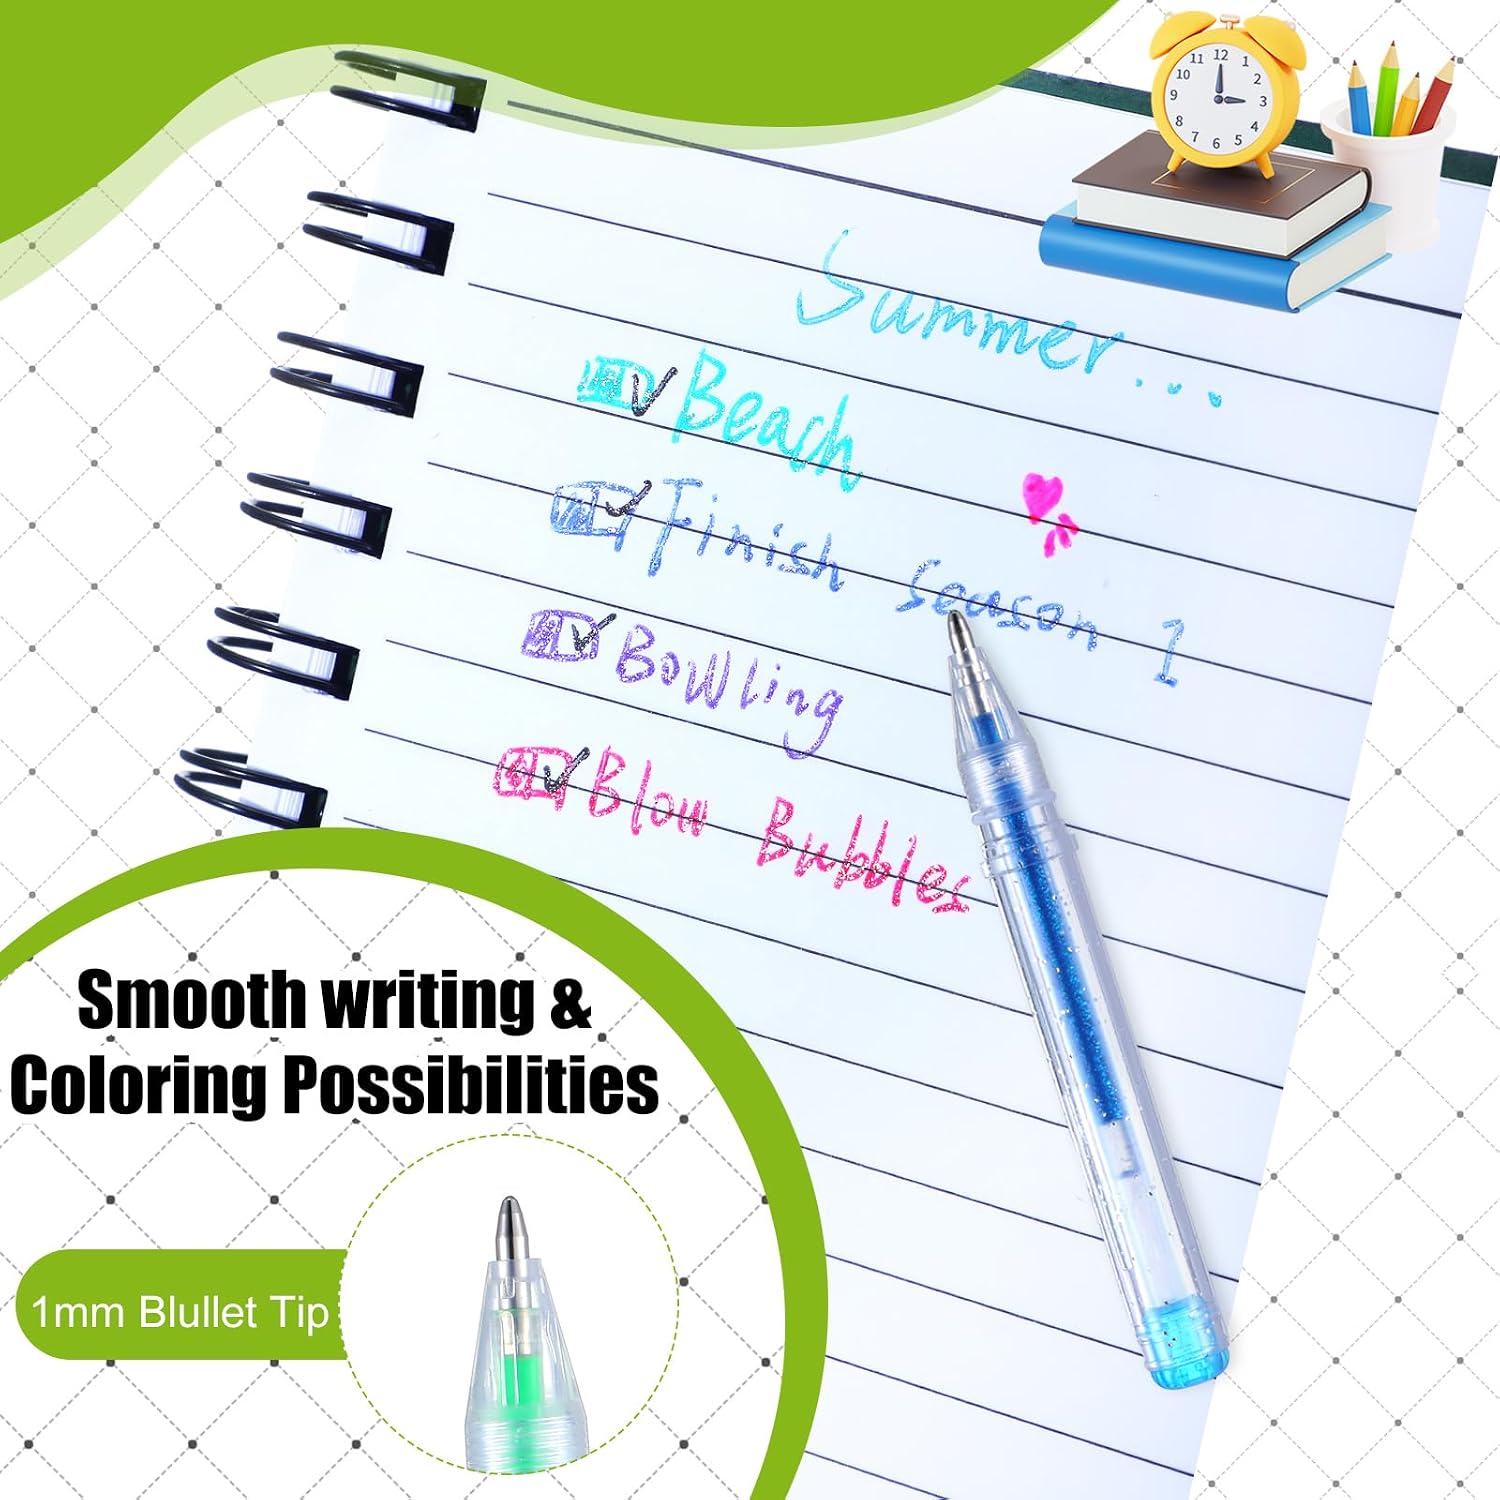 Summer...
Beach
Finish season 1
Bowling
Blow Bubbles
Smooth writing &
Coloring Possibilities
1mm Blullet Tip
12
11
1
10
2
9
3
8
4
7
5
6